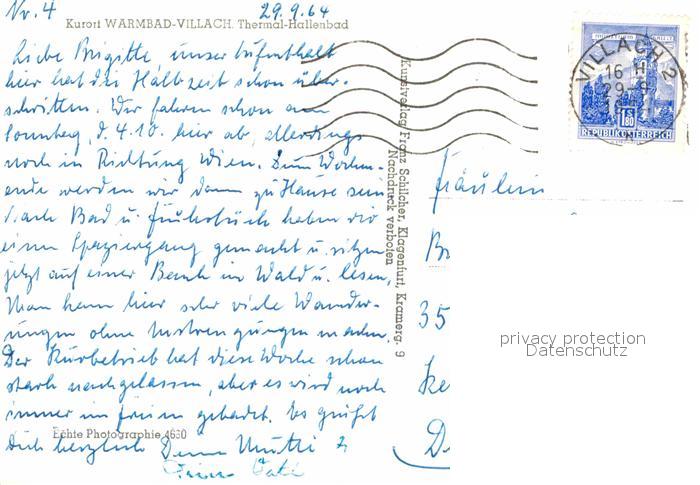 Nr. 4 29.9.64
Kurort WARMBAD-VILLACH. Thermal-Hallenbad
Liebe Brigitte, unser Aufenthalt
hier hat die Halbzeit schon über-
schritten. Wir fahren schon am
Sonntag, d. 4.10. hier ab, allerdings
noch in Richtung Wien. Zum Wochen-
ende werden wir dann zu Hause sein.
Nach Bad u. Frühstück haben wir
einen Spaziergang gemacht u. sitzen
jetzt auf einer Bank im Wald u. lesen.
Man kann hier sehr viele Wander-
ungen ohne Anstrengungen machen.
Der Kurbetrieb hat diese Woche schon
stark nachgelassen, aber es wird noch
immer im freien gebadet. Es grüßt
Echte Photographie 4680
Dich herzlich Deine Mutti
Dein Vati
Kunstverlag Franz Schilcher, Klagenfurt, Kramerg. 9
Nachdruck verboten
VILLACH 2
16 H
29-9
1 S 80
REPUBLIK ÖSTERREICH
Fräulein
Br
35
Ke
D
privacy protection
Datenschutz